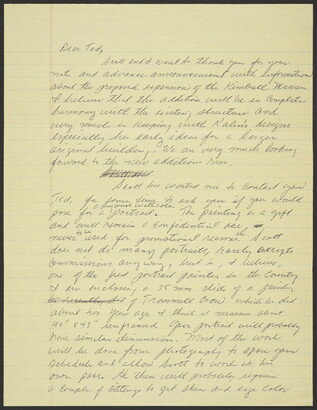 Dear Ted,
Scott and I want to thank you for your
note and advance announcement with information
about the proposed expansion of the Kimbell Museum
I believe that the addition will be in complete
harmony with the existing structure and
very much in keeping with Kahn's designs
especially his early ideas for a larger
original building. We are very much looking
forward to the new addition
Scott has wanted me to contact you
Ted, for some time to ask you if you would
pose for a portrait. The painting is a gift
and will remain a confidential
never used for promotional reasons. Scott
does not do many portraits, rarely accepts
commissions anyway, but is, I believe,
one of the finest portrait painters in the country
I am enclosing a 35 mm slide of a
of Trammell Crow which he did
about two years ago and I think it measures about
unframed. Your portrait will probably
have similar dimensions. Most of the work
will be done from photographs to spare your
schedule and allow Scott to work at his
own pace. He then will probably require
a couple of sittings to get skin and eye color